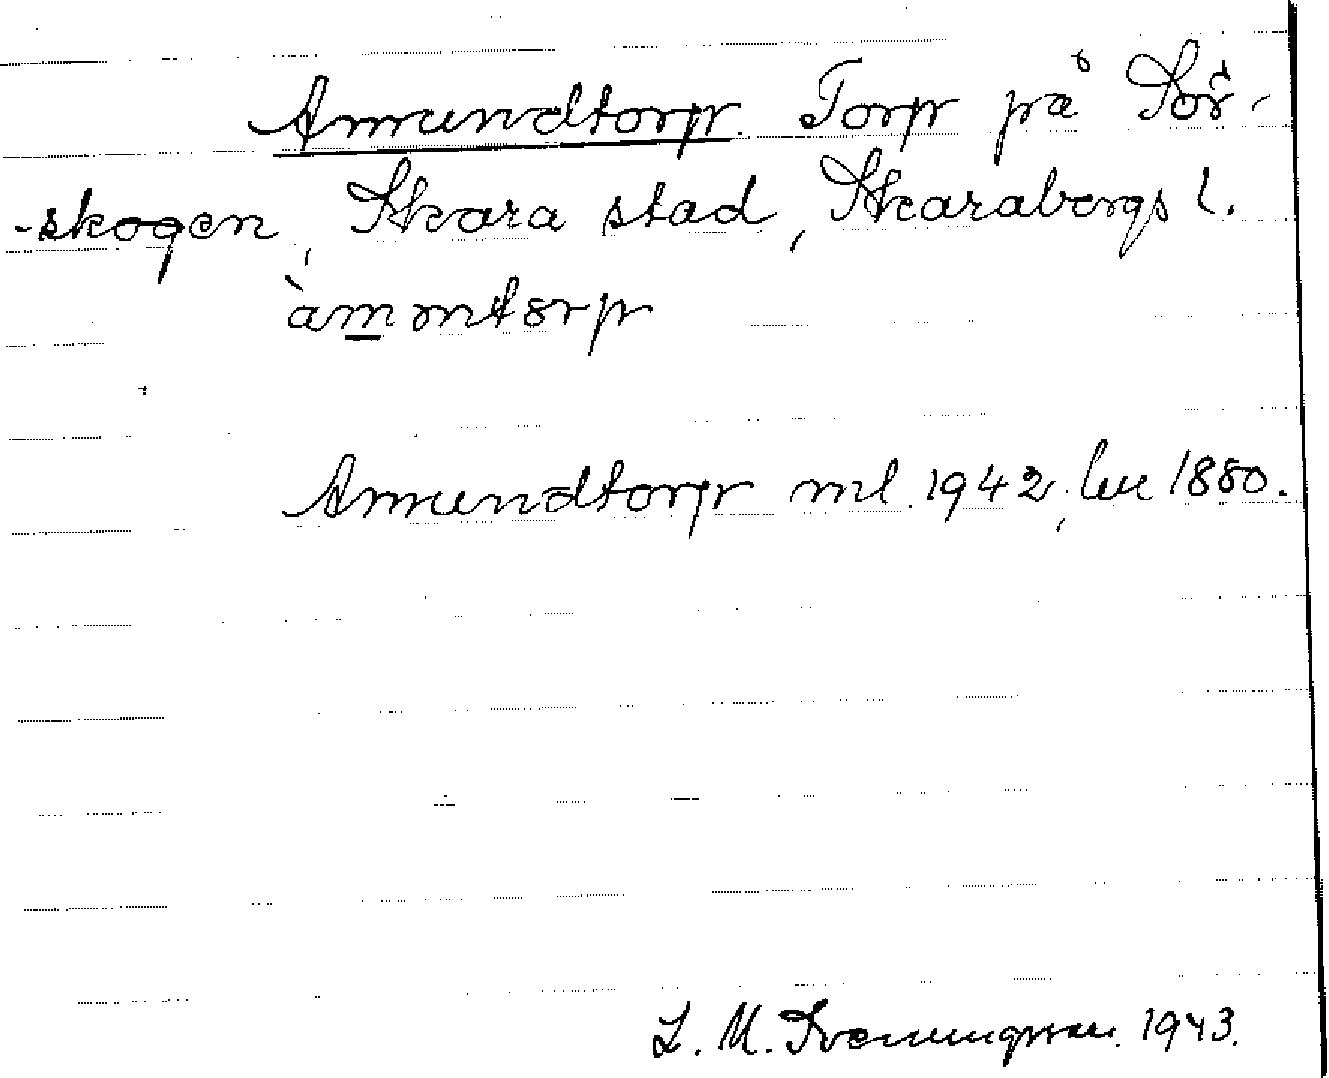 Amundtorp. Torp på Sör-
-skogen, Skara stad, Skarabergs l.
àmmtorp
Amundtorp ml. 1942, lu 1880.
L. M. Svenungsson. 1943.